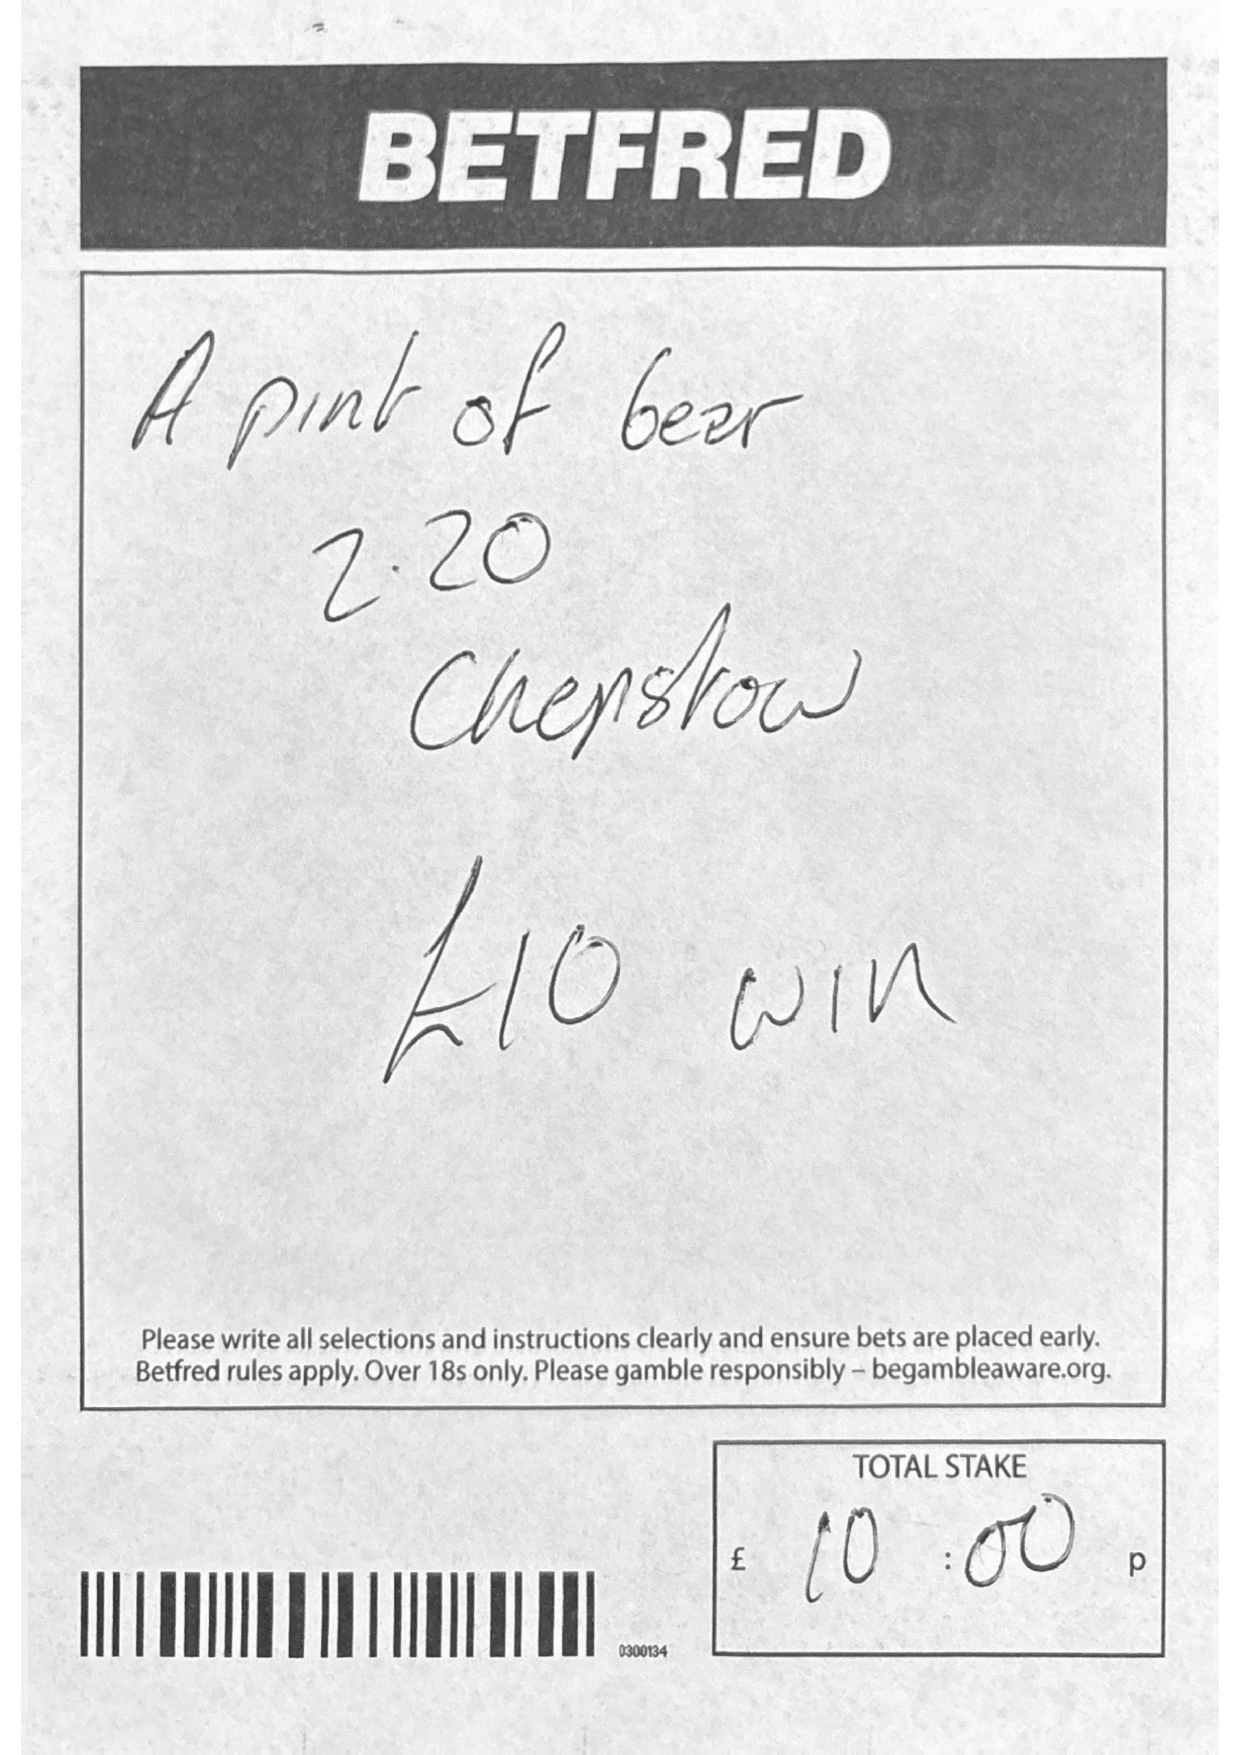 BETFRED
A pint of beer
2.20
Chepstow
£10 win
Please write all selections and instructions clearly and ensure bets are placed early.
Betfred rules apply. Over 18s only. Please gamble responsibly – begambleaware.org.
TOTAL STAKE
£ 10 : 00 p
0300134